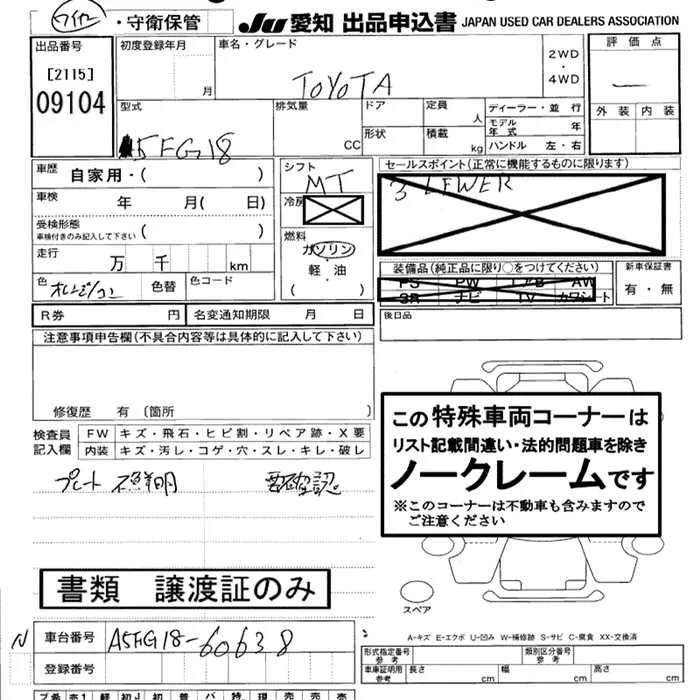 ワイヤー ・守衛保管
JU 愛知 出品申込書 JAPAN USED CAR DEALERS ASSOCIATION
出品番号
[2115]
09104
初度登録年月
月
車名・グレード
TOYOTA
2WD
・
4WD
評価点
外装 内装
型式
5FG18
排気量
CC
ドア
形状
定員
人
積載
kg
ディーラー・並 行
モデル年式 年
ハンドル 左・右
車歴 自家用・( )
車検 年 月( 日)
受検形態
車検付きのみ記入して下さい ( )
走行 万 千 km
色 色替
色コード
シフト
MT
冷房
燃料
ガソリン
・
軽 油
( )
セールスポイント(正常に機能するものに限ります)
3 LEWER
装備品(純正品に限り○をつけてください)
PS PW エアB AW
SR ナビ TV カワシート
新車保証書
有・無
R券 円 名変通知期限 月 日
後日品
注意事項申告欄(不具合内容等は具体的に記入して下さい)
修復歴 有 〔箇所 〕
検査員
記入欄
FW キズ・飛石・ヒビ割・リペア跡・X要
内装 キズ・汚レ・コゲ・穴・スレ・キレ・破レ
プレート 不鮮明 要確認
この特殊車両コーナーは
リスト記載間違い・法的問題車を除き
ノークレームです
※このコーナーは不動車も含みますので
ご注意ください
書類 譲渡証のみ
スペア
A-キズ E-エクボ U-凹み W-補修跡 S-サビ C-腐食 XX-交換済
N 車台番号 A5FG18-60638
登録番号
形式指定番号
参考
類別区分番号
参考
車庫証明用
参考
長さ 幅 高さ
cm cm cm